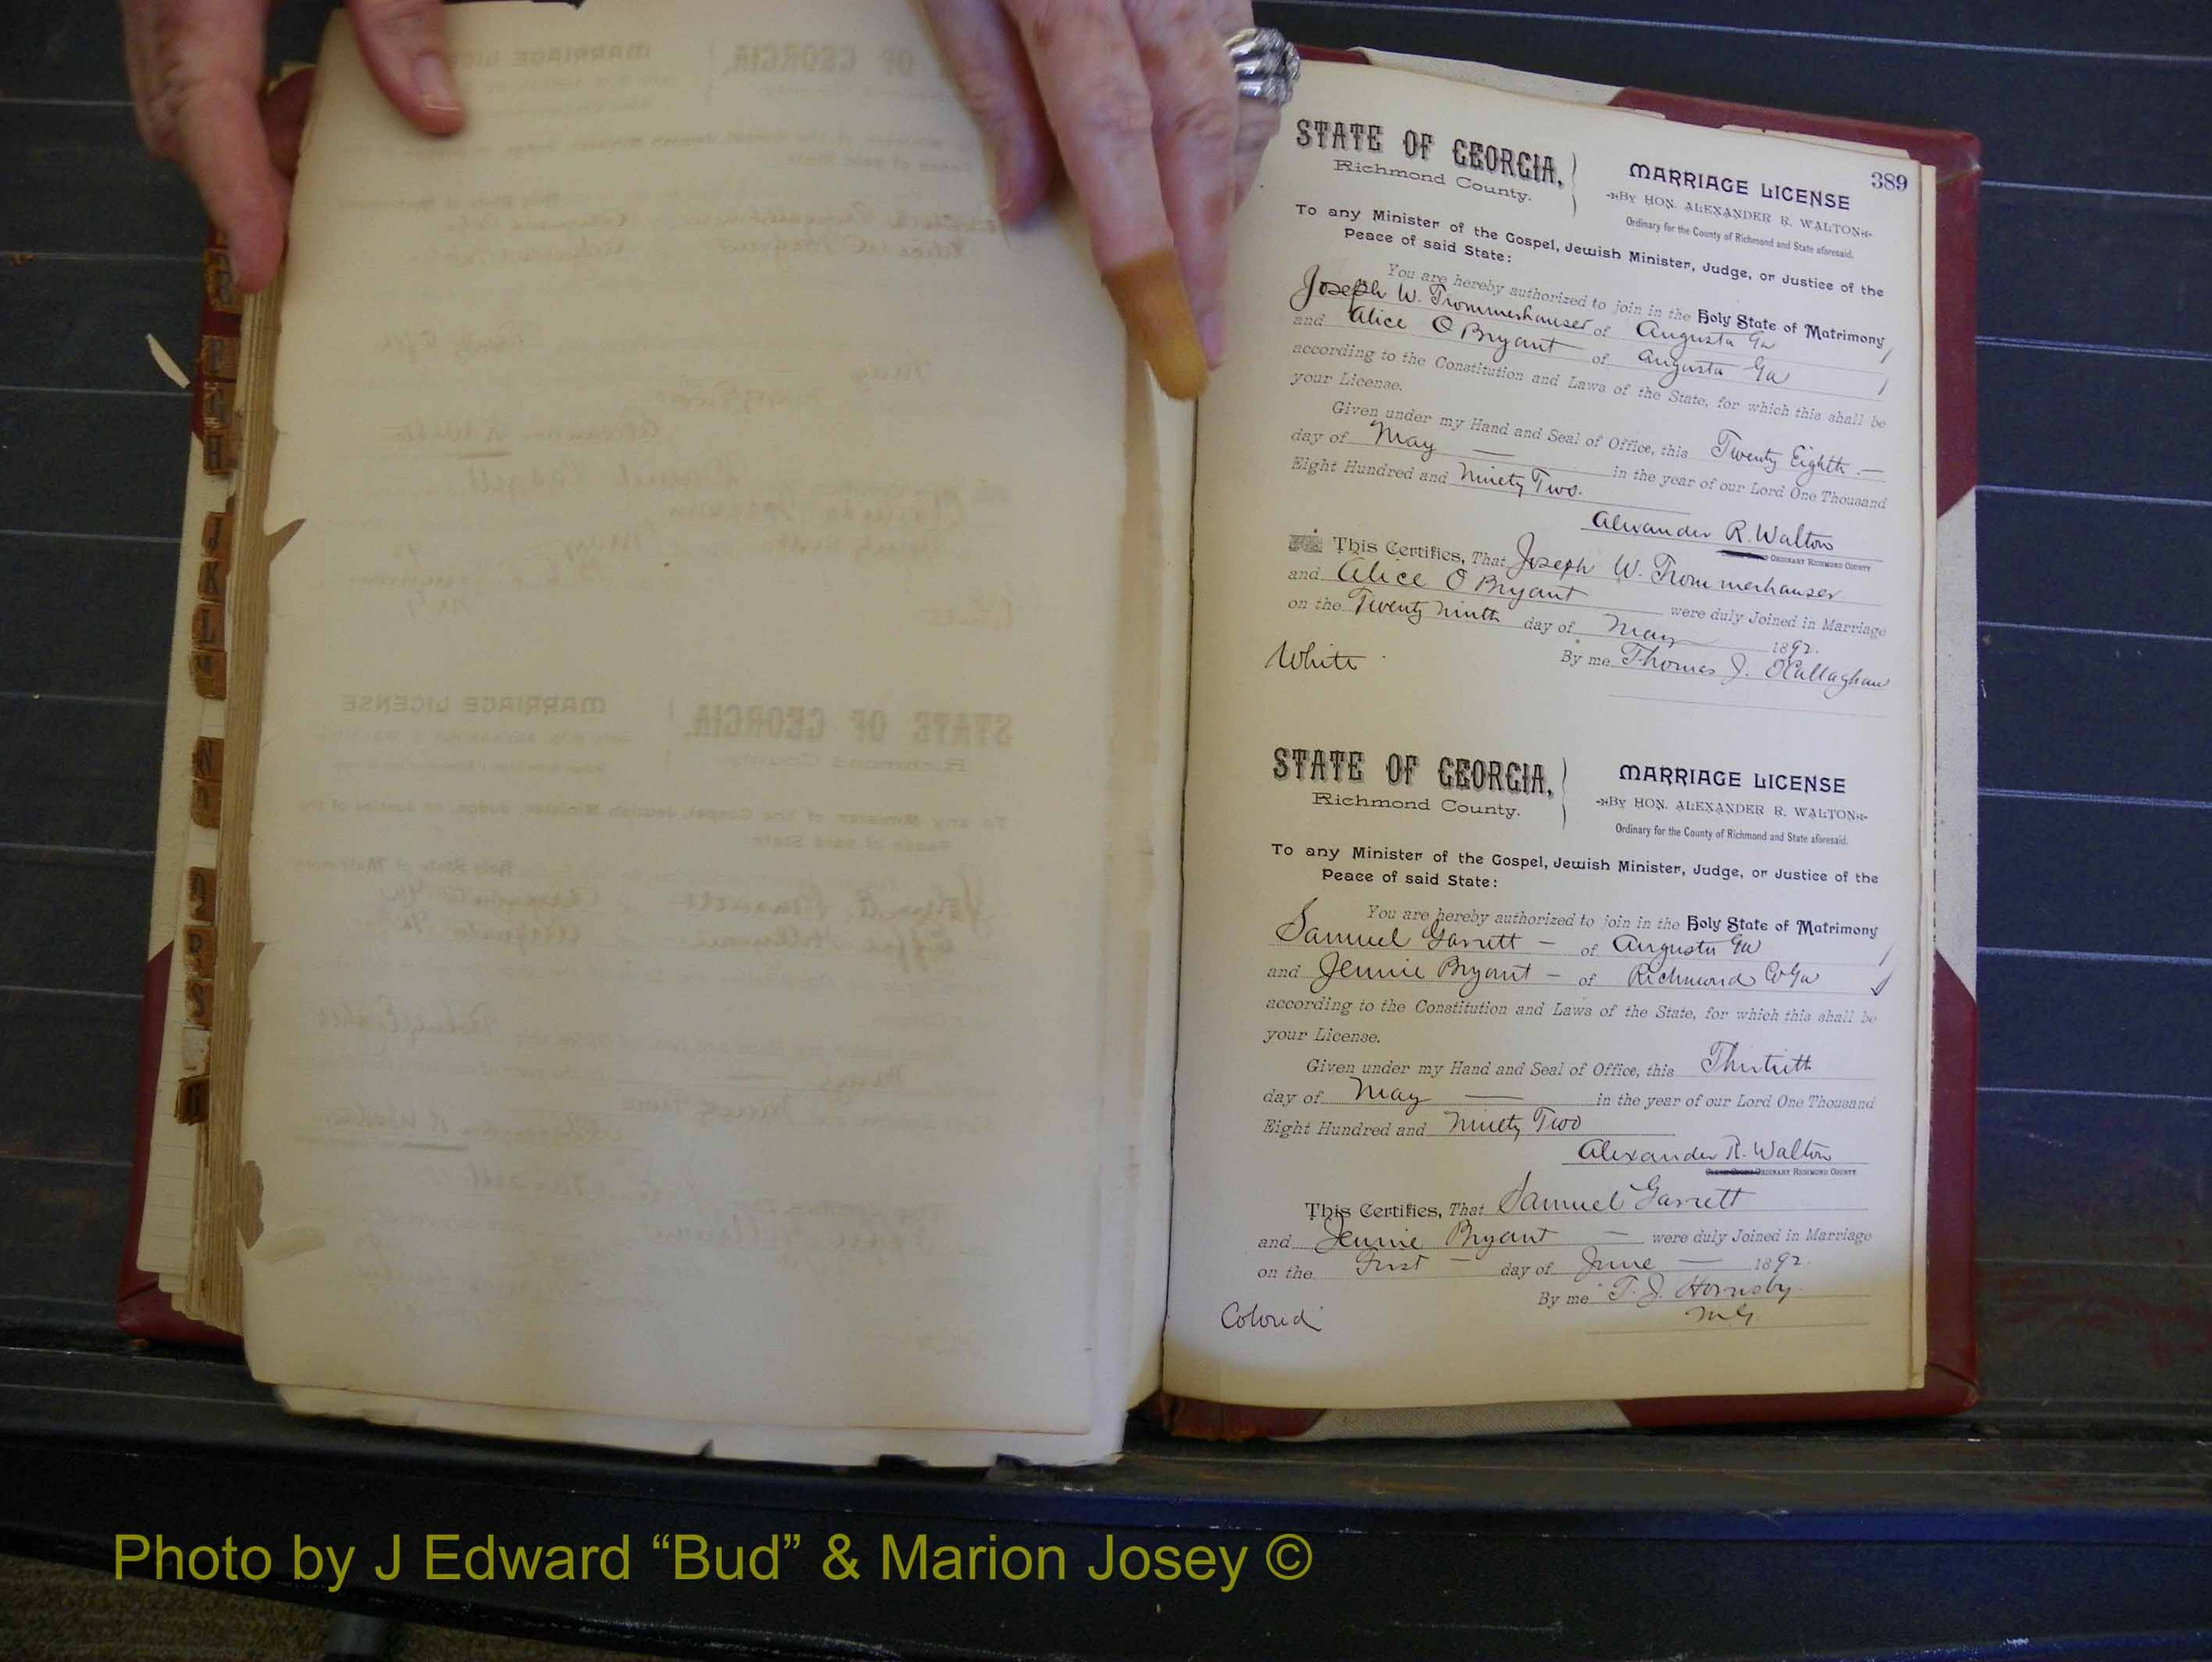 389
STATE OF GEORGIA,
Richmond County.
MARRIAGE LICENSE
BY HON. ALEXANDER R. WALTON
Ordinary for the County of Richmond and State aforesaid.
To any Minister of the Gospel, Jewish Minister, Judge, or Justice of the
Peace of said State:
You are hereby authorized to join in the Holy State of Matrimony
Joseph W. Trommerhauser of Augusta Ga
and Alice O Bryant of Augusta Ga
according to the Constitution and Laws of the State, for which this shall be
your License.
Given under my Hand and Seal of Office, this Twenty Eighth
day of May — in the year of our Lord One Thousand
Eight Hundred and Ninety Two.
Alexander R. Walton
ORDINARY RICHMOND COUNTY
This Certifies, That Joseph W. Trommerhauser
and Alice O Bryant were duly Joined in Marriage
on the Twenty Ninth day of May 1892.
White
By me Thomas J. O'Callaghan
STATE OF GEORGIA,
Richmond County.
MARRIAGE LICENSE
BY HON. ALEXANDER R. WALTON
Ordinary for the County of Richmond and State aforesaid.
To any Minister of the Gospel, Jewish Minister, Judge, or Justice of the
Peace of said State:
You are hereby authorized to join in the Holy State of Matrimony
Samuel Garrett — of Augusta Ga
and Jennie Bryant — of Richmond Co Ga
according to the Constitution and Laws of the State, for which this shall be
your License.
Given under my Hand and Seal of Office, this Thirtieth
day of May — in the year of our Lord One Thousand
Eight Hundred and Ninety Two
Alexander R. Walton
ORDINARY RICHMOND COUNTY
This Certifies, That Samuel Garrett
and Jennie Bryant — were duly Joined in Marriage
on the First — day of June — 1892.
By me T. J. Hornsby
M G
Colored
Photo by J Edward “Bud” & Marion Josey ©